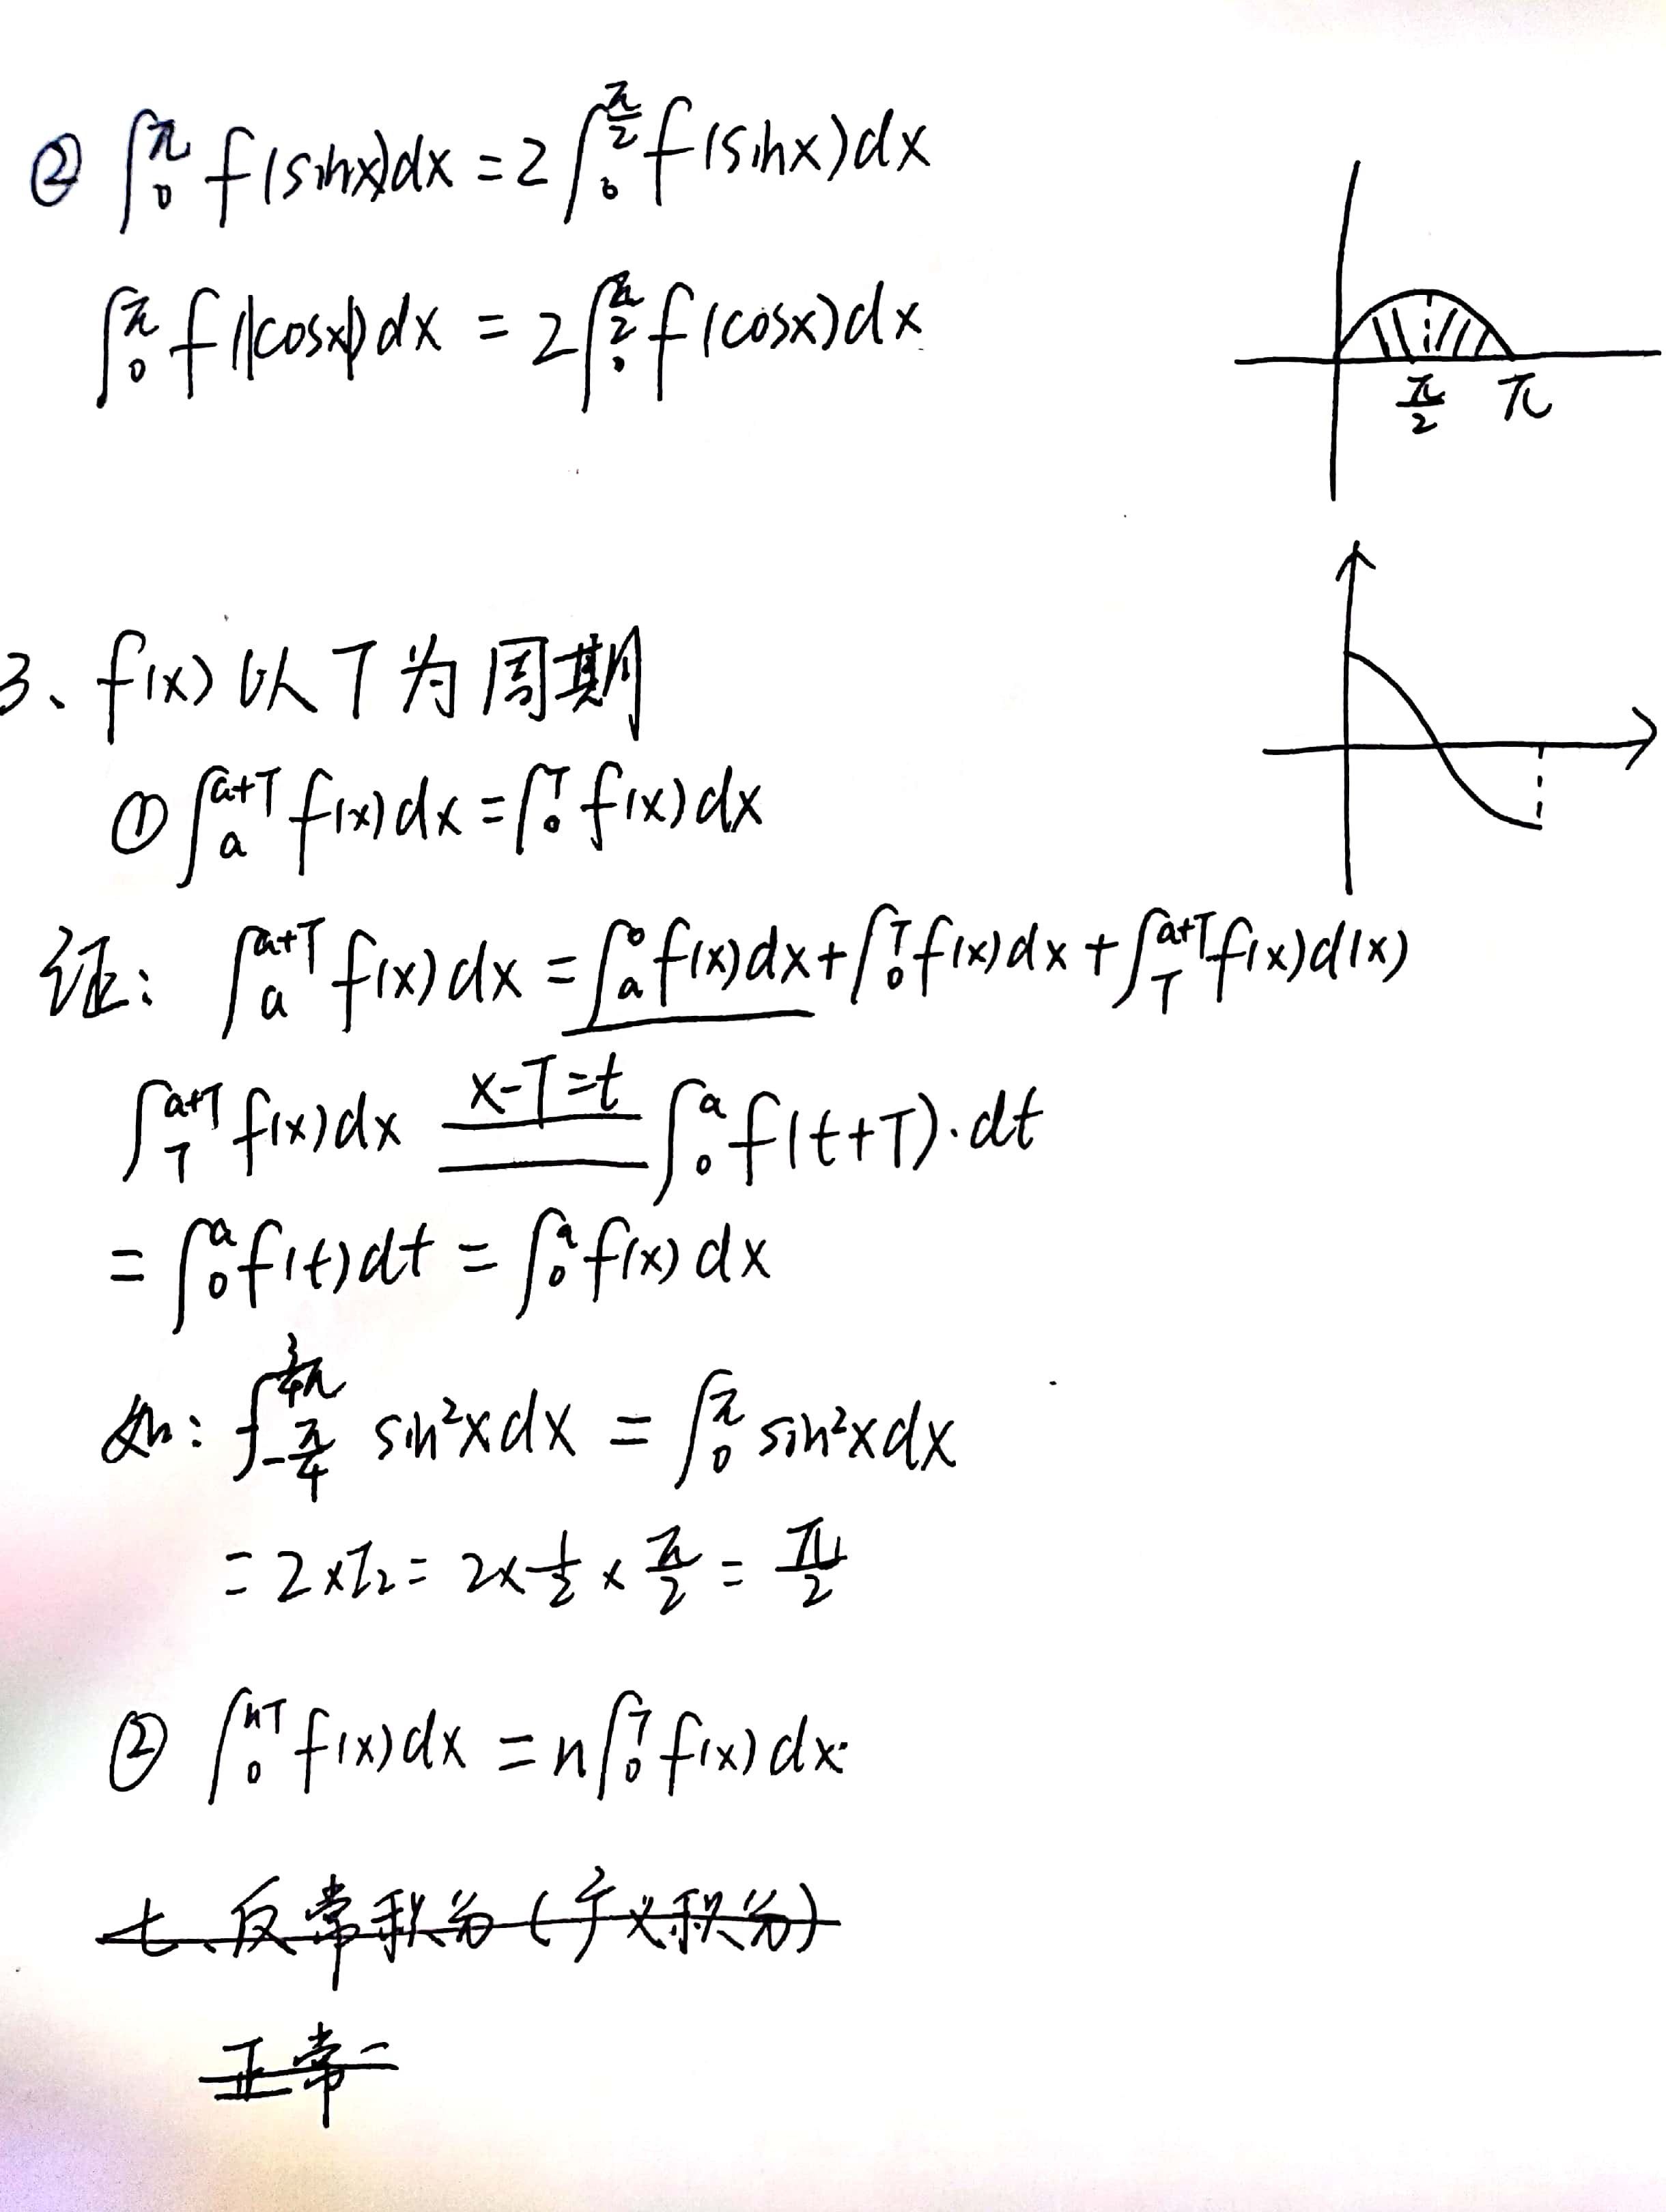 ② ∫₀^π f(sinx)dx = 2∫₀^(π/2) f(sinx)dx
∫₀^π f(|cosx|)dx = 2∫₀^(π/2) f(cosx)dx
π/2 π
3、f(x) 以 T 为周期
① ∫ₐ^(a+T) f(x)dx = ∫₀^T f(x)dx
证: ∫ₐ^(a+T) f(x)dx = ∫ₐ^0 f(x)dx + ∫₀^T f(x)dx + ∫_T^(a+T) f(x)d(x)
∫_T^(a+T) f(x)dx =(x-T=t)= ∫₀^a f(t+T)·dt
= ∫₀^a f(t)dt = ∫₀^a f(x)dx
如: ∫_(-π/4)^(3/4 π) sin²xdx = ∫₀^π sin²xdx
= 2×I₂ = 2×1/2×π/2 = π/2
② ∫₀^(nT) f(x)dx = n∫₀^T f(x)dx
七、反常积分(广义积分)
正常